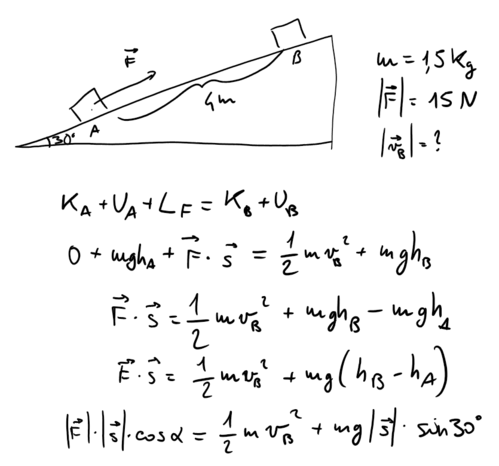 F⃗
B
4m
A
30°
m = 1,5 Kg
|F⃗| = 15 N
|v⃗_B| = ?
K_A + U_A + L_F = K_B + U_B
0 + mgh_A + F⃗ · s⃗ = 1/2 m v_B² + mgh_B
F⃗ · s⃗ = 1/2 m v_B² + mgh_B − mgh_A
F⃗ · s⃗ = 1/2 m v_B² + mg(h_B − h_A)
|F⃗| · |s⃗| · cos α = 1/2 m v_B² + mg|s⃗| · sin 30°